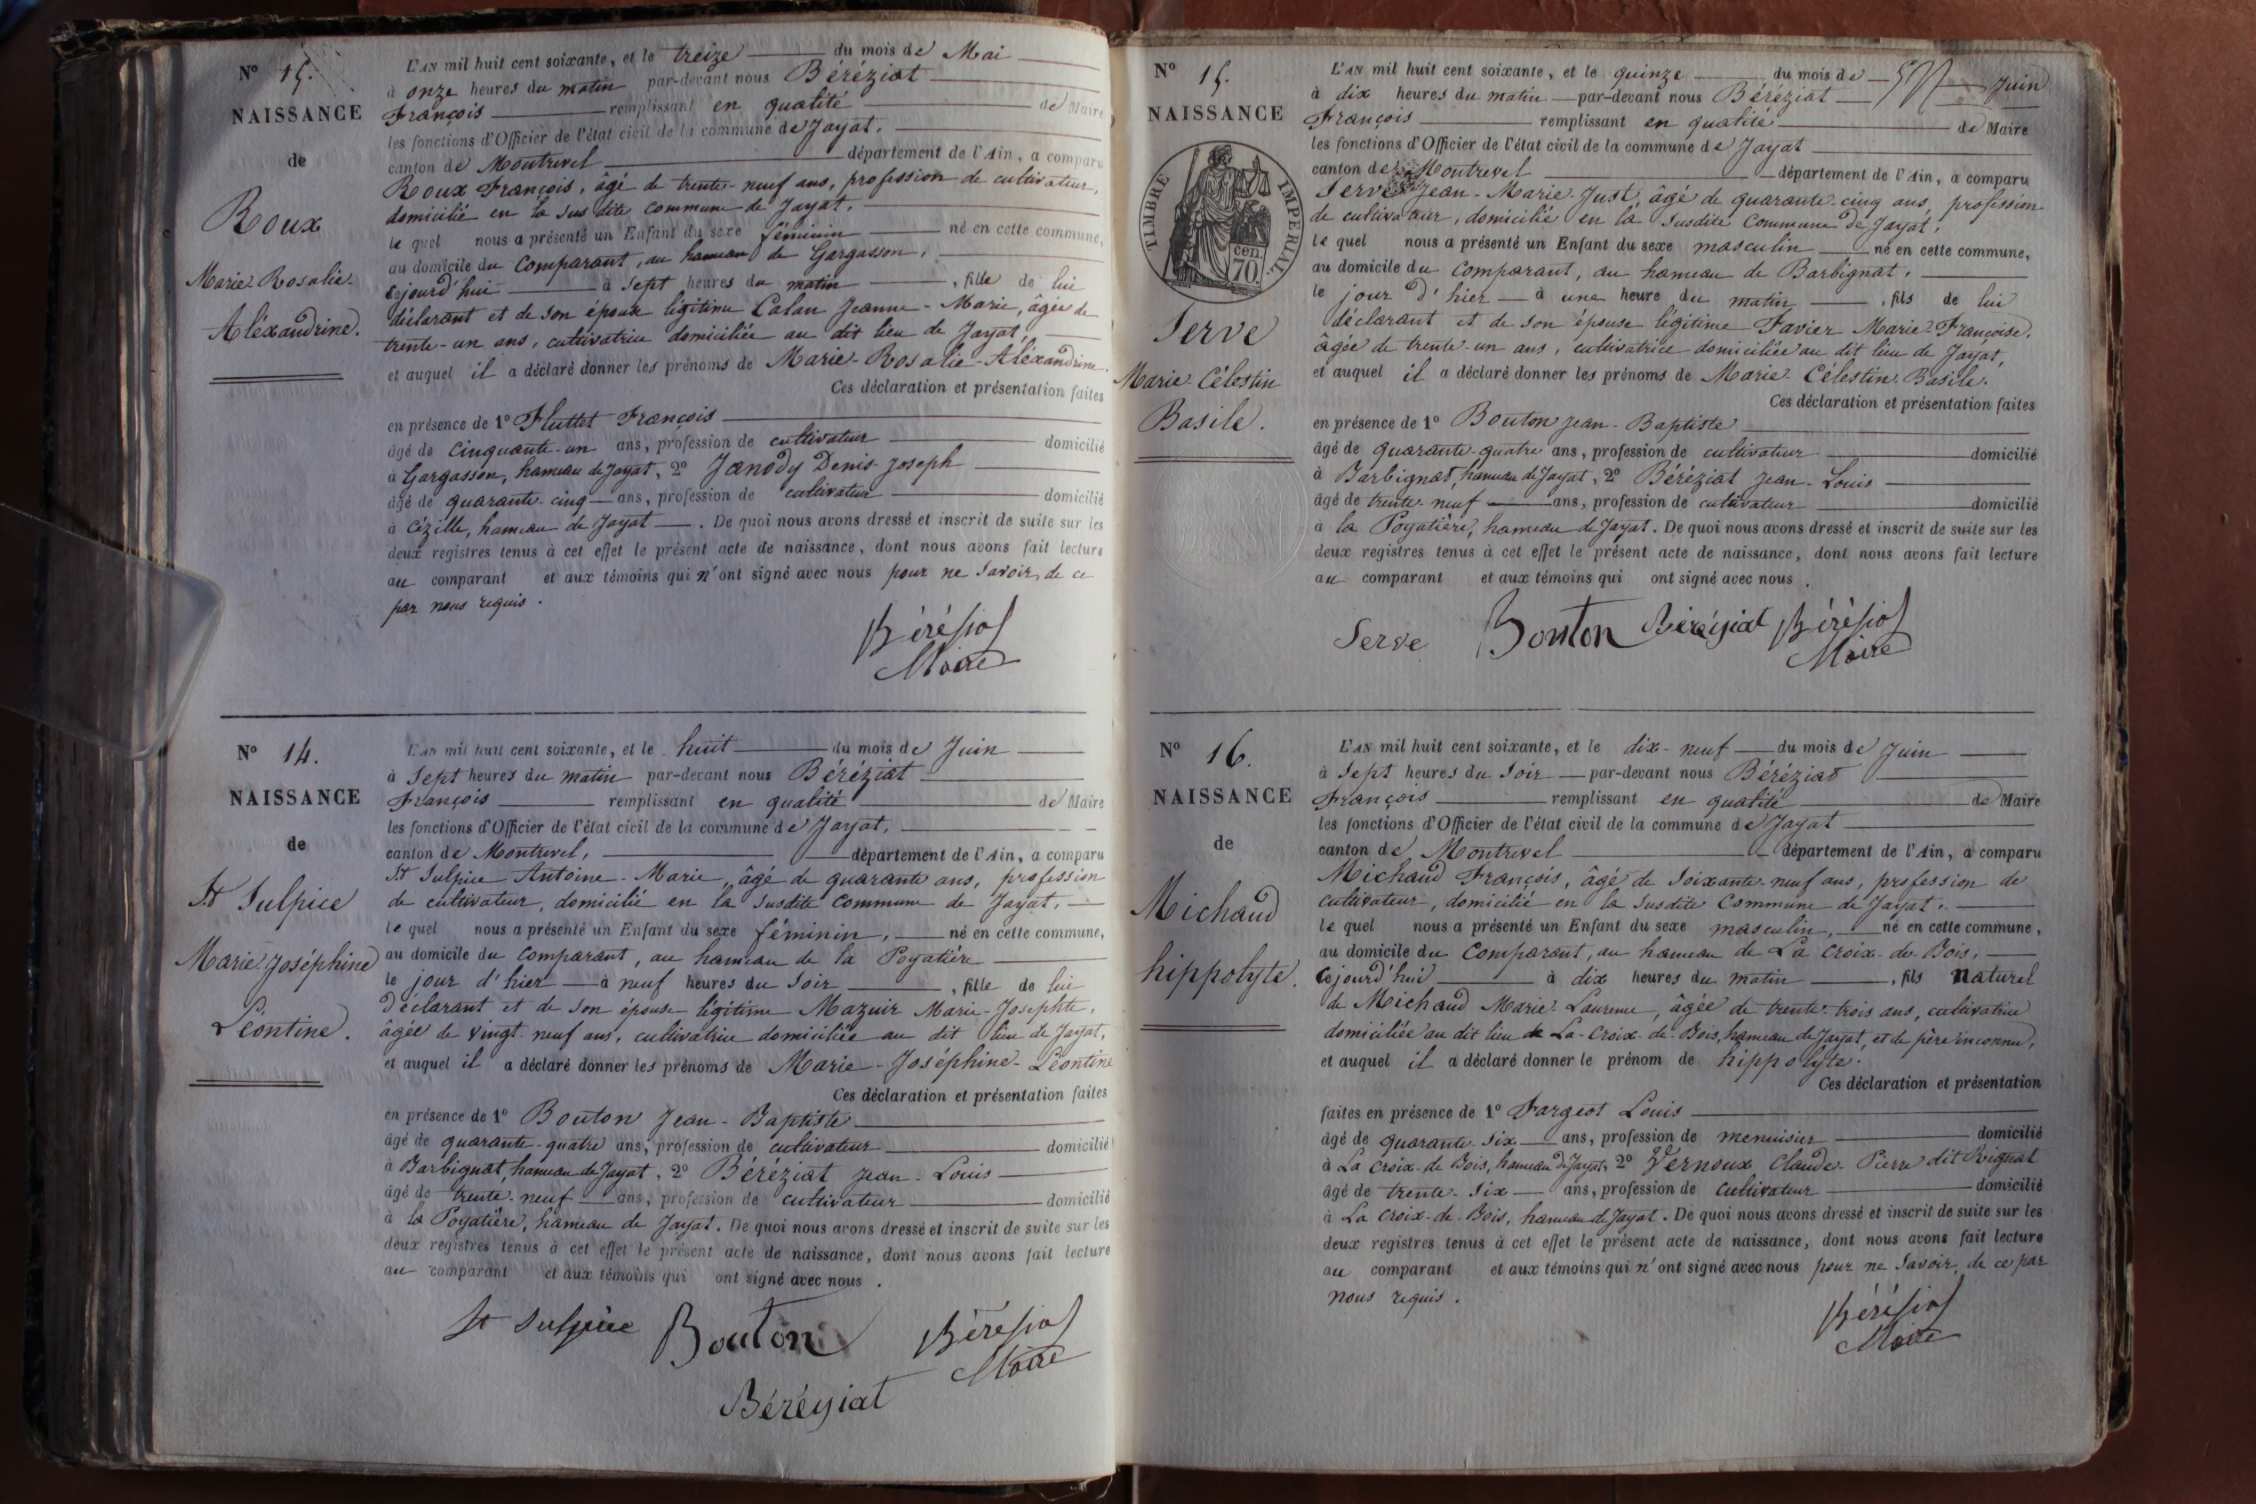 N° 15.
NAISSANCE
de
Roux
Marie-Rosalie-
Aléxandrine.
L'AN mil huit cent soixante, et le treize du mois de Mai
à onze heures du matin par-devant nous Béréziat
François remplissant en qualité de Maire
les fonctions d'Officier de l'état civil de la commune de Jayat,
canton de Montrevel département de l'Ain, a comparu
Roux François, âgé de trente-neuf ans, profession de cultivateur,
domicilié en la susdite commune de Jayat,
le quel nous a présenté un Enfant du sexe féminin né en cette commune,
au domicile du comparant, au hameau de Gargasson,
cejourd'hui à sept heures du matin, fille de lui
déclarant et de son épouse légitime Calan Jeanne-Marie, âgée de
trente-un ans, cultivatrice domiciliée au dit lieu de Jayat,
et auquel il a déclaré donner les prénoms de Marie-Rosalie-Aléxandrine.
Ces déclaration et présentation faites
en présence de 1° Fluttet François
âgé de cinquante-un ans, profession de cultivateur domicilié
à Gargasson, hameau de Jayat, 2° Janody Denis-Joseph
âgé de quarante-cinq ans, profession de cultivateur domicilié
à Cézille, hameau de Jayat. De quoi nous avons dressé et inscrit de suite sur les
deux registres tenus à cet effet le présent acte de naissance, dont nous avons fait lecture
au comparant et aux témoins qui n'ont signé avec nous pour ne savoir, de ce
par nous requis.
Béréziat
Maire
N° 14.
NAISSANCE
de
St Sulpice
Marie-Joséphine
Léontine.
L'AN mil huit cent soixante, et le huit du mois de Juin
à sept heures du matin par-devant nous Béréziat
François remplissant en qualité de Maire
les fonctions d'Officier de l'état civil de la commune de Jayat,
canton de Montrevel, département de l'Ain, a comparu
St Sulpice Antoine-Marie, âgé de quarante ans, profession
de cultivateur, domicilié en la susdite commune de Jayat,
le quel nous a présenté un Enfant du sexe féminin, né en cette commune,
au domicile du comparant, au hameau de la Poyatière
le jour d'hier à neuf heures du soir, fille de lui
déclarant et de son épouse légitime Mazuir Marie-Josephte,
âgée de vingt-neuf ans, cultivatrice domiciliée au dit lieu de Jayat,
et auquel il a déclaré donner les prénoms de Marie-Joséphine-Léontine
Ces déclaration et présentation faites
en présence de 1° Bouton Jean-Baptiste
âgé de quarante-quatre ans, profession de cultivateur domicilié
à Barbignat, hameau de Jayat, 2° Béréziat Jean-Louis
âgé de trente-neuf ans, profession de cultivateur domicilié
à la Poyatière, hameau de Jayat. De quoi nous avons dressé et inscrit de suite sur les
deux registres tenus à cet effet le présent acte de naissance, dont nous avons fait lecture
au comparant et aux témoins qui ont signé avec nous.
St Sulpice Bouton Béréziat
Maire
Béréziat
N° 15.
NAISSANCE
TIMBRE IMPERIAL
70 cen.
Serve
Marie-Célestin
Basile.
L'AN mil huit cent soixante, et le quinze du mois de Juin
à dix heures du matin par-devant nous Béréziat
François remplissant en qualité de Maire
les fonctions d'Officier de l'état civil de la commune de Jayat
canton de Montrevel département de l'Ain, a comparu
Serve Jean-Marie-Just, âgé de quarante-cinq ans, profession
de cultivateur, domicilié en la susdite commune de Jayat,
le quel nous a présenté un Enfant du sexe masculin né en cette commune,
au domicile du comparant, au hameau de Barbignat,
le jour d'hier à une heure du matin, fils de lui
déclarant et de son épouse légitime Favier Marie-Françoise,
âgée de trente-un ans, cultivatrice domiciliée au dit lieu de Jayat,
et auquel il a déclaré donner les prénoms de Marie-Célestin-Basile.
Ces déclaration et présentation faites
en présence de 1° Bouton Jean-Baptiste
âgé de quarante-quatre ans, profession de cultivateur domicilié
à Barbignat, hameau de Jayat, 2° Béréziat Jean-Louis
âgé de trente-neuf ans, profession de cultivateur domicilié
à la Poyatière, hameau de Jayat. De quoi nous avons dressé et inscrit de suite sur les
deux registres tenus à cet effet le présent acte de naissance, dont nous avons fait lecture
au comparant et aux témoins qui ont signé avec nous.
Serve Bouton Béréziat Béréziat
Maire
N° 16.
NAISSANCE
de
Michaud
hippolyte.
L'AN mil huit cent soixante, et le dix-neuf du mois de Juin
à sept heures du soir par-devant nous Béréziat
François remplissant en qualité de Maire
les fonctions d'Officier de l'état civil de la commune de Jayat
canton de Montrevel département de l'Ain, a comparu
Michaud François, âgé de soixante-neuf ans, profession de
cultivateur, domicilié en la susdite commune de Jayat,
le quel nous a présenté un Enfant du sexe masculin, né en cette commune,
au domicile du comparant, au hameau de La Croix-de-Bois,
cejourd'hui à dix heures du matin, fils naturel
de Michaud Marie-Laurence, âgée de trente-trois ans, cultivatrice
domiciliée au dit lieu de La-Croix-de-Bois, hameau de Jayat, et de père inconnu,
et auquel il a déclaré donner le prénom de hippolyte.
Ces déclaration et présentation
faites en présence de 1° Fargeot Louis
âgé de quarante-six ans, profession de menuisier domicilié
à La Croix-de-Bois, hameau de Jayat, 2° Vernoux Claude-Pierre dit Avignat
âgé de trente-six ans, profession de cultivateur domicilié
à La Croix-de-Bois, hameau de Jayat. De quoi nous avons dressé et inscrit de suite sur les
deux registres tenus à cet effet le présent acte de naissance, dont nous avons fait lecture
au comparant et aux témoins qui n'ont signé avec nous pour ne savoir, de ce par
nous requis.
Béréziat
Maire